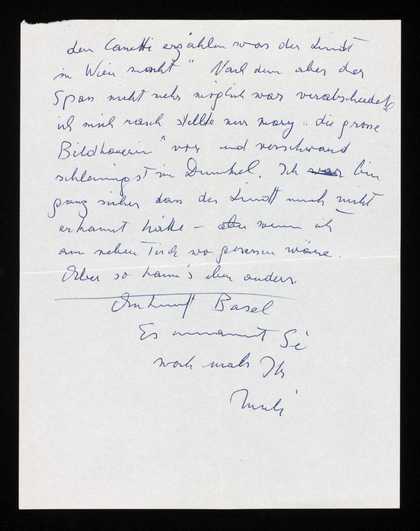 den Canetti erzählen was der Lindt
in Wien macht" Nach dem aber der
Spass nicht mehr möglich war verabschiedete
ich mich rasch stellte nur Mary „die grosse
Bildhauerin" vor und verschwand
schleunigst im Dunkel. Ich bin
ganz sicher dass der Lindt mich nicht
erkannt hätte – wenn ich
am neben Tisch wo gesessen wäre.
Aber so kam's eben anders.
Ankunft Basel
Es umarmt Sie
noch mals Ihr